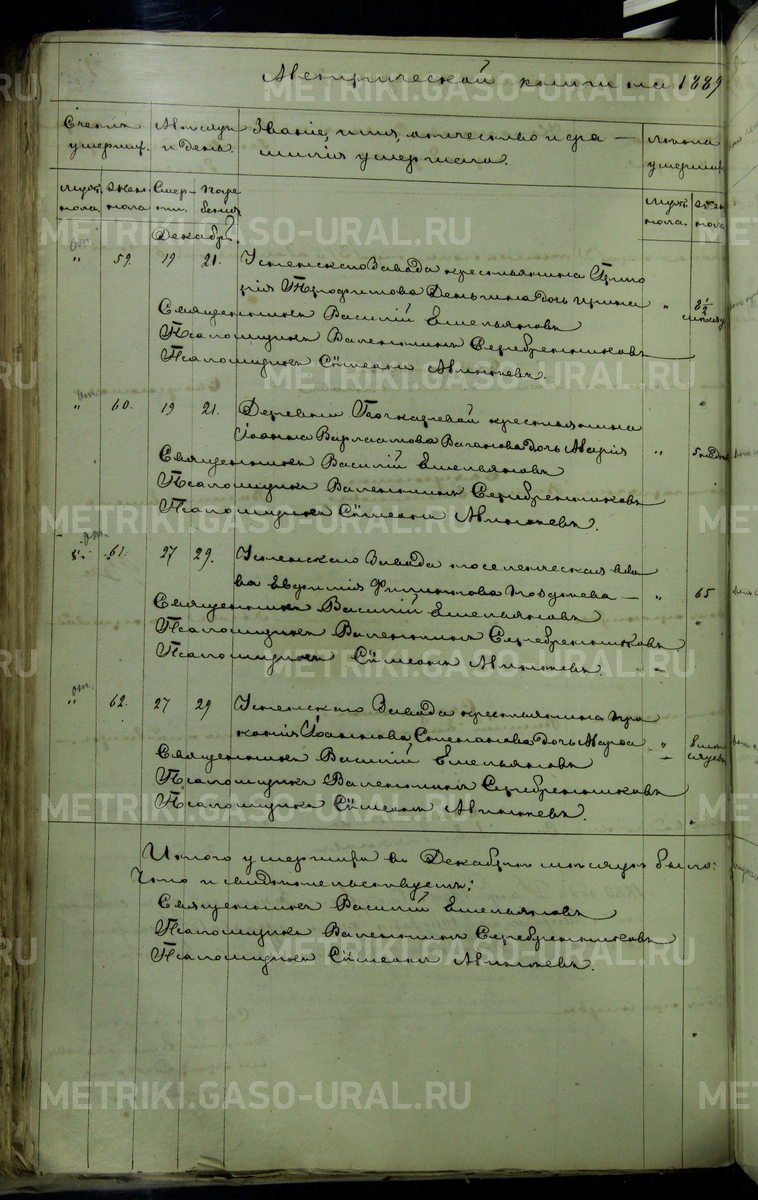 Метрической книги на 1889
Счетъ умерших.
Мѣсяцъ и день.
Званіе, имя, отчество и фамилія умершаго.
Лѣта умерших.
Муж. пола.
Жен. пола
Смерти.
Погребенія.
Муж. пола.
Жен. пола
Декабрь.
" 59. 19 21. Успенскаго Завода крестьянина Григорія Трофимова дочь Ирина " 8½ мѣсяц
Священникъ Василій Емельяновъ
Псаломщикъ Валентинъ Серебренниковъ
Псаломщикъ Сѵмеонъ
" 60. 19 21. Деревни крестьянина
Іоанна Варлаамова Ваганова дочь Марія " 5 недѣль
Священникъ Василій Емельяновъ
Псаломщикъ Валентинъ Серебренниковъ
Псаломщикъ Сѵмеонъ
" 61. 27 29. Успенскаго Завода поселенческая вдова
Евфимія Филиппова — " 65
Священникъ Василій Емельяновъ
Псаломщикъ Валентинъ Серебренниковъ
Псаломщикъ Сѵмеонъ
" 62. 27 29 Успенскаго Завода крестьянина Прокопія
Іоаннова Степанова дочь " 8 мѣсяцевъ
Священникъ Василій Емельяновъ
Псаломщикъ Валентинъ Серебренниковъ
Псаломщикъ Сѵмеонъ
Итого умерших въ Декабрѣ мѣсяцѣ было:
Что и свидѣтельствуетъ:
Священникъ Василій Емельяновъ
Псаломщикъ Валентинъ Серебренниковъ
Псаломщикъ Сѵмеонъ
METRIKI.GASO-URAL.RU